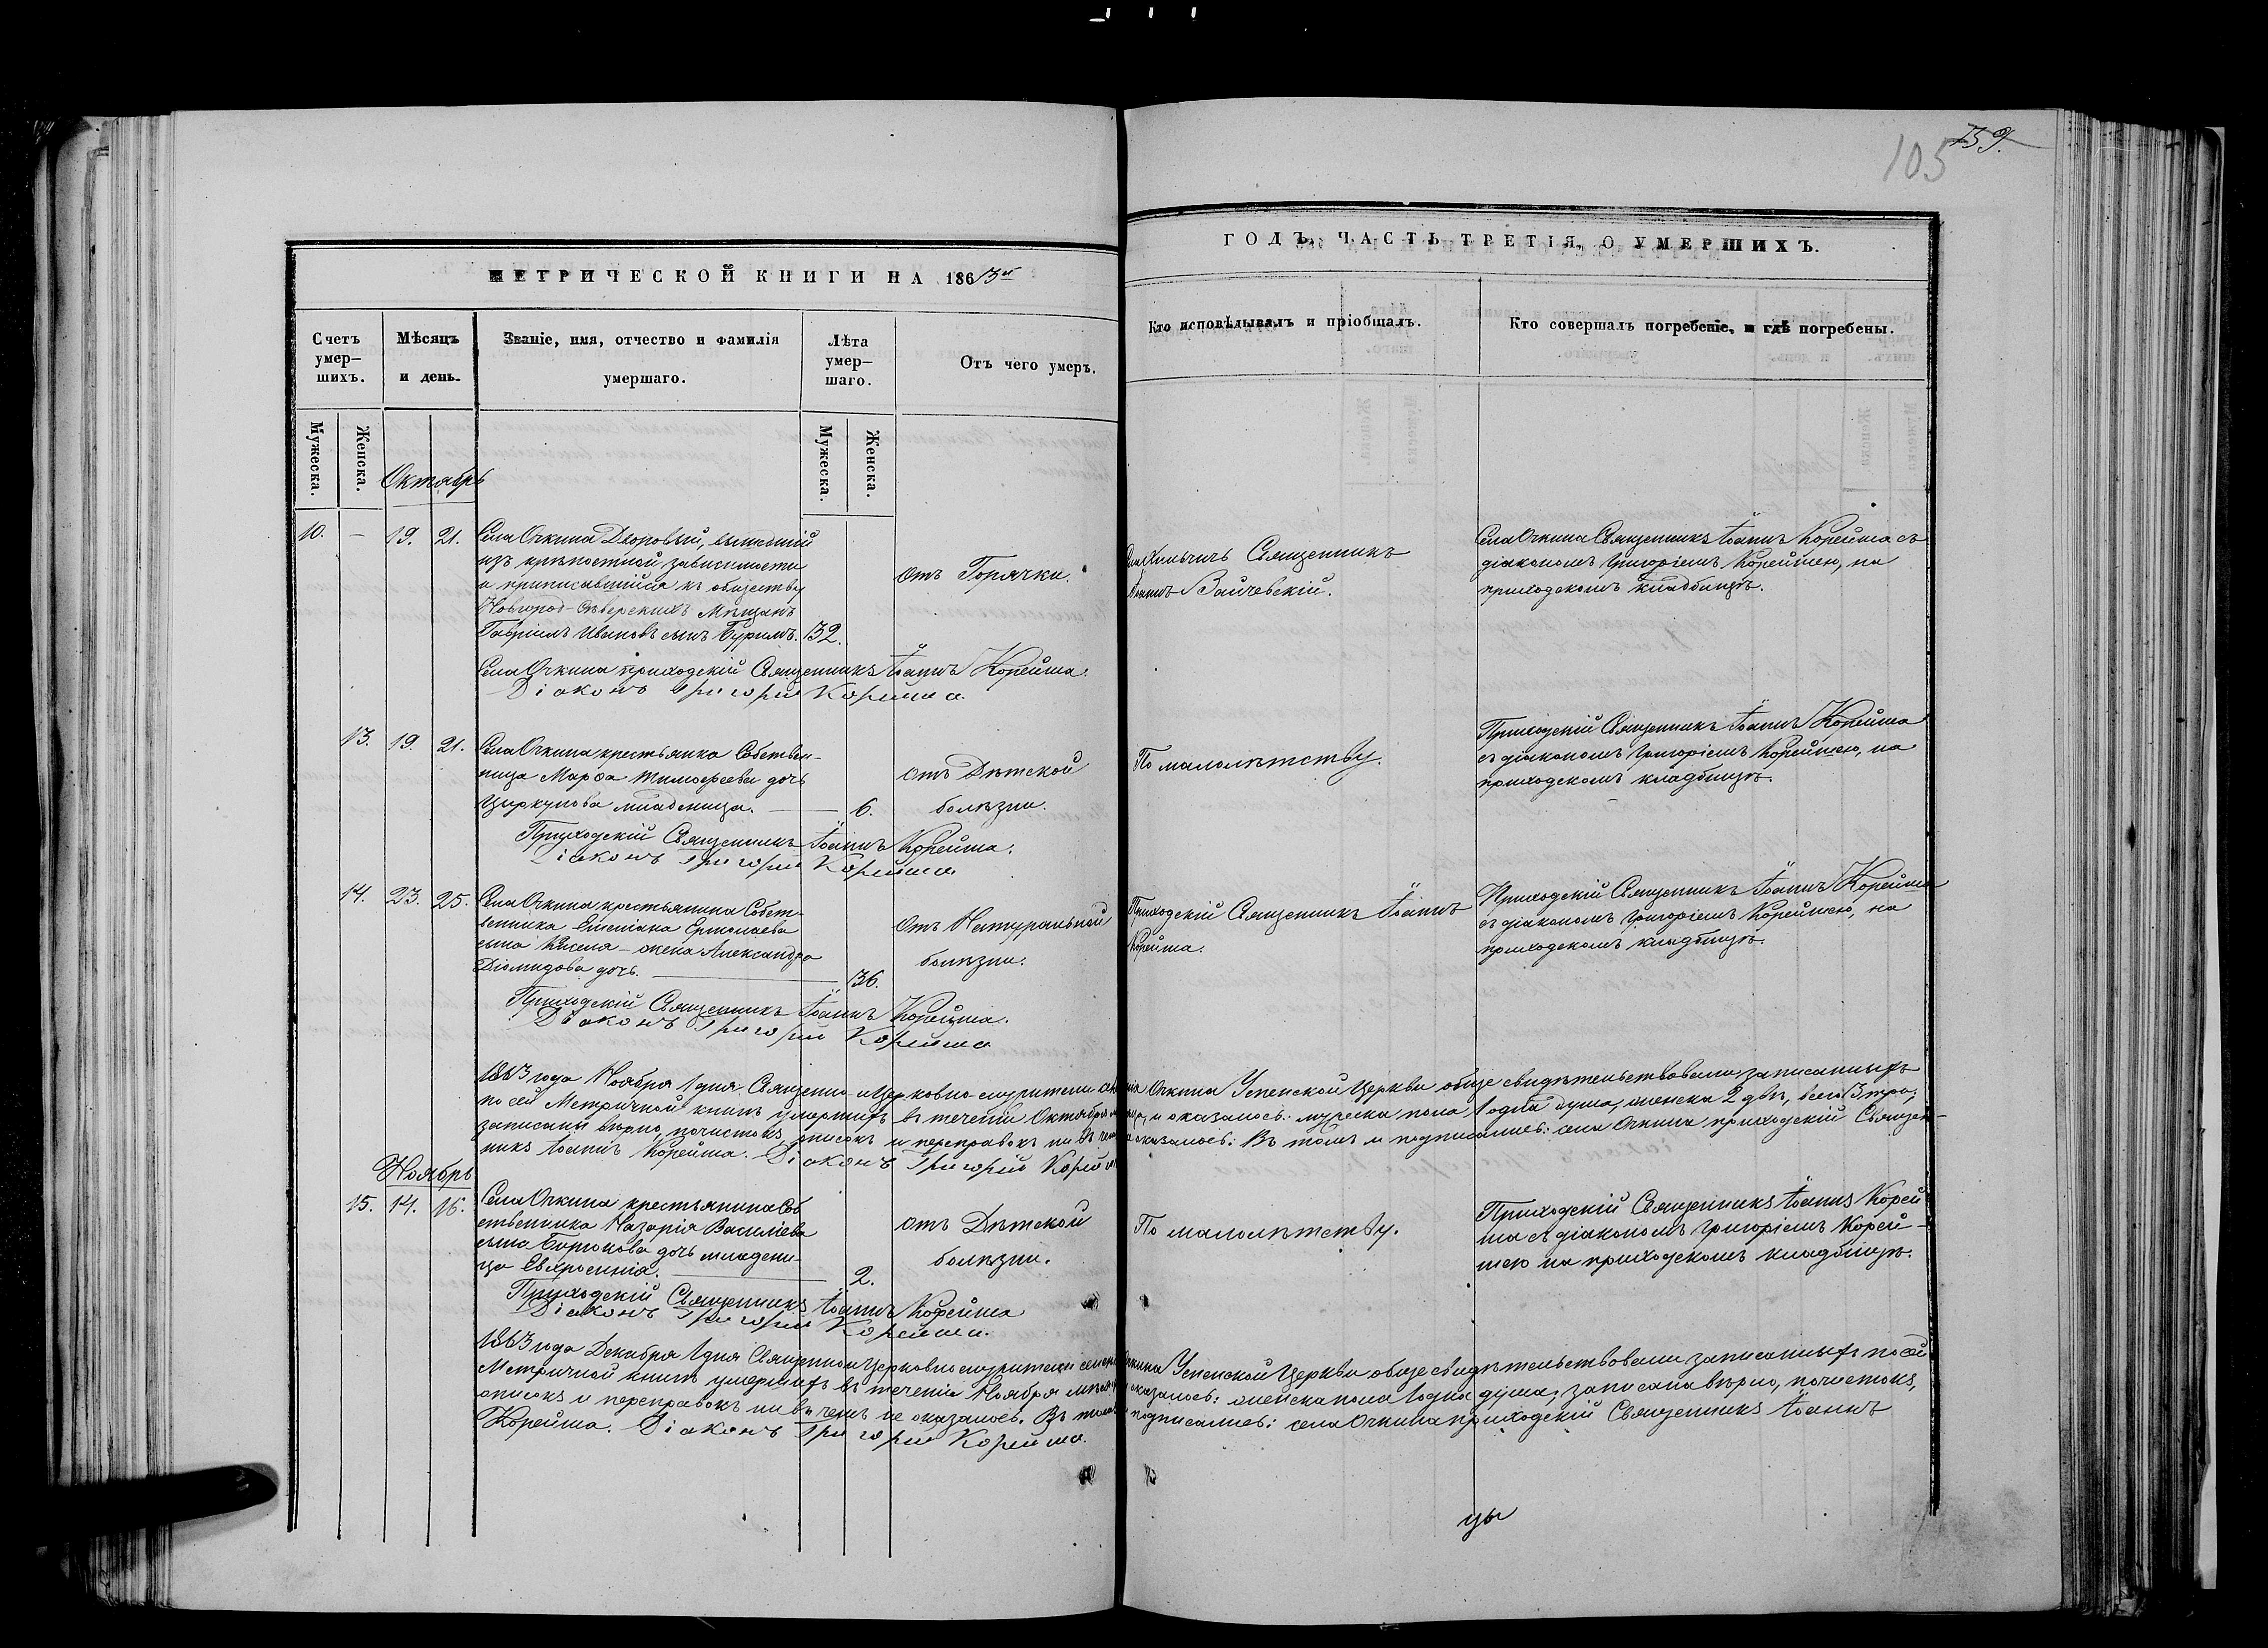 105 139.
МЕТРИЧЕСКОЙ КНИГИ НА 1863й
ГОДЪ, ЧАСТЬ ТРЕТІЯ, О УМЕРШИХЪ.
Счетъ умер–шихъ.
Мѣсяцъ и день.
Званіе, имя, отчество и фамилія умершаго.
Лѣта умер–шаго.
Отъ чего умеръ.
Кто исповѣдывалъ и пріобщалъ.
Кто совершалъ погребеніе, и гдѣ погребены.
Мужеска.
Женска.
Мужеска.
Женска.
Октябрь
10. — 19. 21.
Села Очкина Дворовый, вышедшій
изъ крѣпостной зависимости
и приписавшійся къ обществу
Новгород-Сѣверскихъ Мѣщанъ
Гавріилъ Ивановъ сынъ Буримъ. 32.
отъ Горячки.
Священникъ
Іоаннъ Зайчевскій.
Села Очкина Священникъ Іоаннъ Корейша съ
діакономъ Григоріемъ Корейшею, на
приходскомъ кладбищѣ.
Села Очкина приходскій Священникъ Іоаннъ Корейша.
Діаконъ Григорій Корейша.
13. 19. 21.
Села Очкина крестьянка Собствен-
ница Марѳа Тимоѳеева дочь
Циркунова младеница. — 6.
отъ Дѣтской
болѣзни.
По малолѣтству.
Приходскій Священникъ Іоаннъ Корейша
съ діакономъ Григоріемъ Корейшею, на
приходскомъ кладбищѣ.
Приходскій Священникъ Іоаннъ Корейша.
Діаконъ Григорій Корейша
14. 23. 25.
Села Очкина крестьянина Собст-
венника Ермолаева
сына Киселя – жена Александра
Діомидова дочь. — 36.
отъ Натуральной
болѣзни.
Приходскій Священникъ Іоаннъ
Корейша.
Приходскій Священникъ Іоаннъ Корейша
съ діакономъ Григоріемъ Корейшею, на
приходскомъ кладбищѣ.
Приходскій Священникъ Іоаннъ Корейша.
Діаконъ Григорій Корейша
1863 года Ноября 1 дня Священно и Церковно-служители села Очкина Успенской Церкви обще свидѣтельствовали записанныхъ
по сей Метричной книгѣ умершихъ въ теченіи Октября и оказалось: мужеска пола 1 одна душа, женска 2 двѣ, всего 3 три;
записаны вѣрно, почистокъ, описокъ и переправокъ ни въ чемъ не оказалось. Въ томъ и подписались: села Очкина приходскій Священ-
никъ Іоаннъ Корейша. Діаконъ Григорій Корейша
Ноябрь
15. 14. 16.
Села Очкина крестьянина Соб
ственника Назарія Василіева
сына Бирюкова дочь младени-
ца Евфросинія. — 2.
отъ Дѣтской
болѣзни.
По малолѣтству.
Приходскій Священникъ Іоаннъ Корей
ша съ діакономъ Григоріемъ Корей-
шею на приходскомъ кладбищѣ.
Приходскій Священникъ Іоаннъ Корейша
Діаконъ Григорій Корейша.
1863 года Декабря 1 дня Священно и Церковнослужители села Очкина Успенской Церкви обще свидѣтельствовали записанныхъ по сей
Метричной книгѣ умершихъ въ теченіи Ноября мѣсяца оказалось: женска пола 1 одна душа, записана вѣрно, почистокъ,
описокъ и переправокъ ни въ чемъ не оказалось. Въ томъ и подписались: села Очкина приходскій Священникъ Іоаннъ
Корейша. Діаконъ Григорій Корейша.
цы